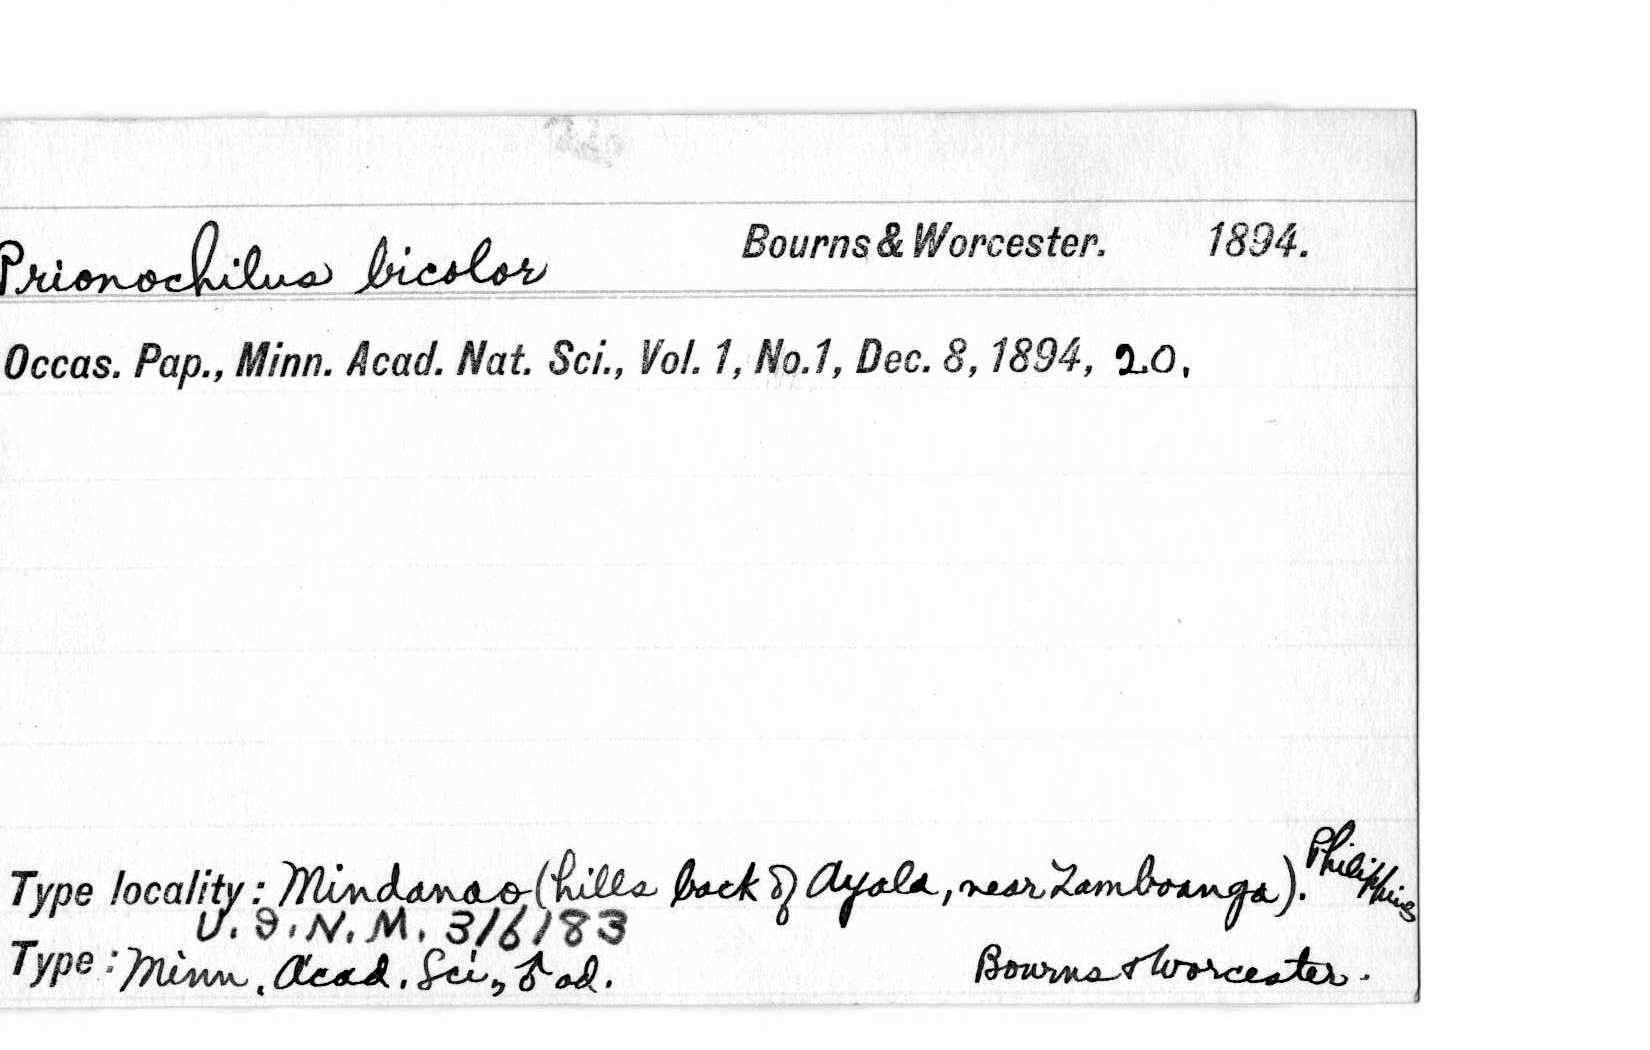 Prionochilus bicolor Bourns & Worcester. 1894.
Occas. Pap., Minn. Acad. Nat. Sci., Vol. 1, No.1, Dec. 8, 1894, 20.
Type locality: Mindanao (hills back of Ayala, near Zamboanga). Philippines
U.S.N.M. 316183
Type: Minn. Acad. Sci., ♂ ad. Bourns & Worcester.